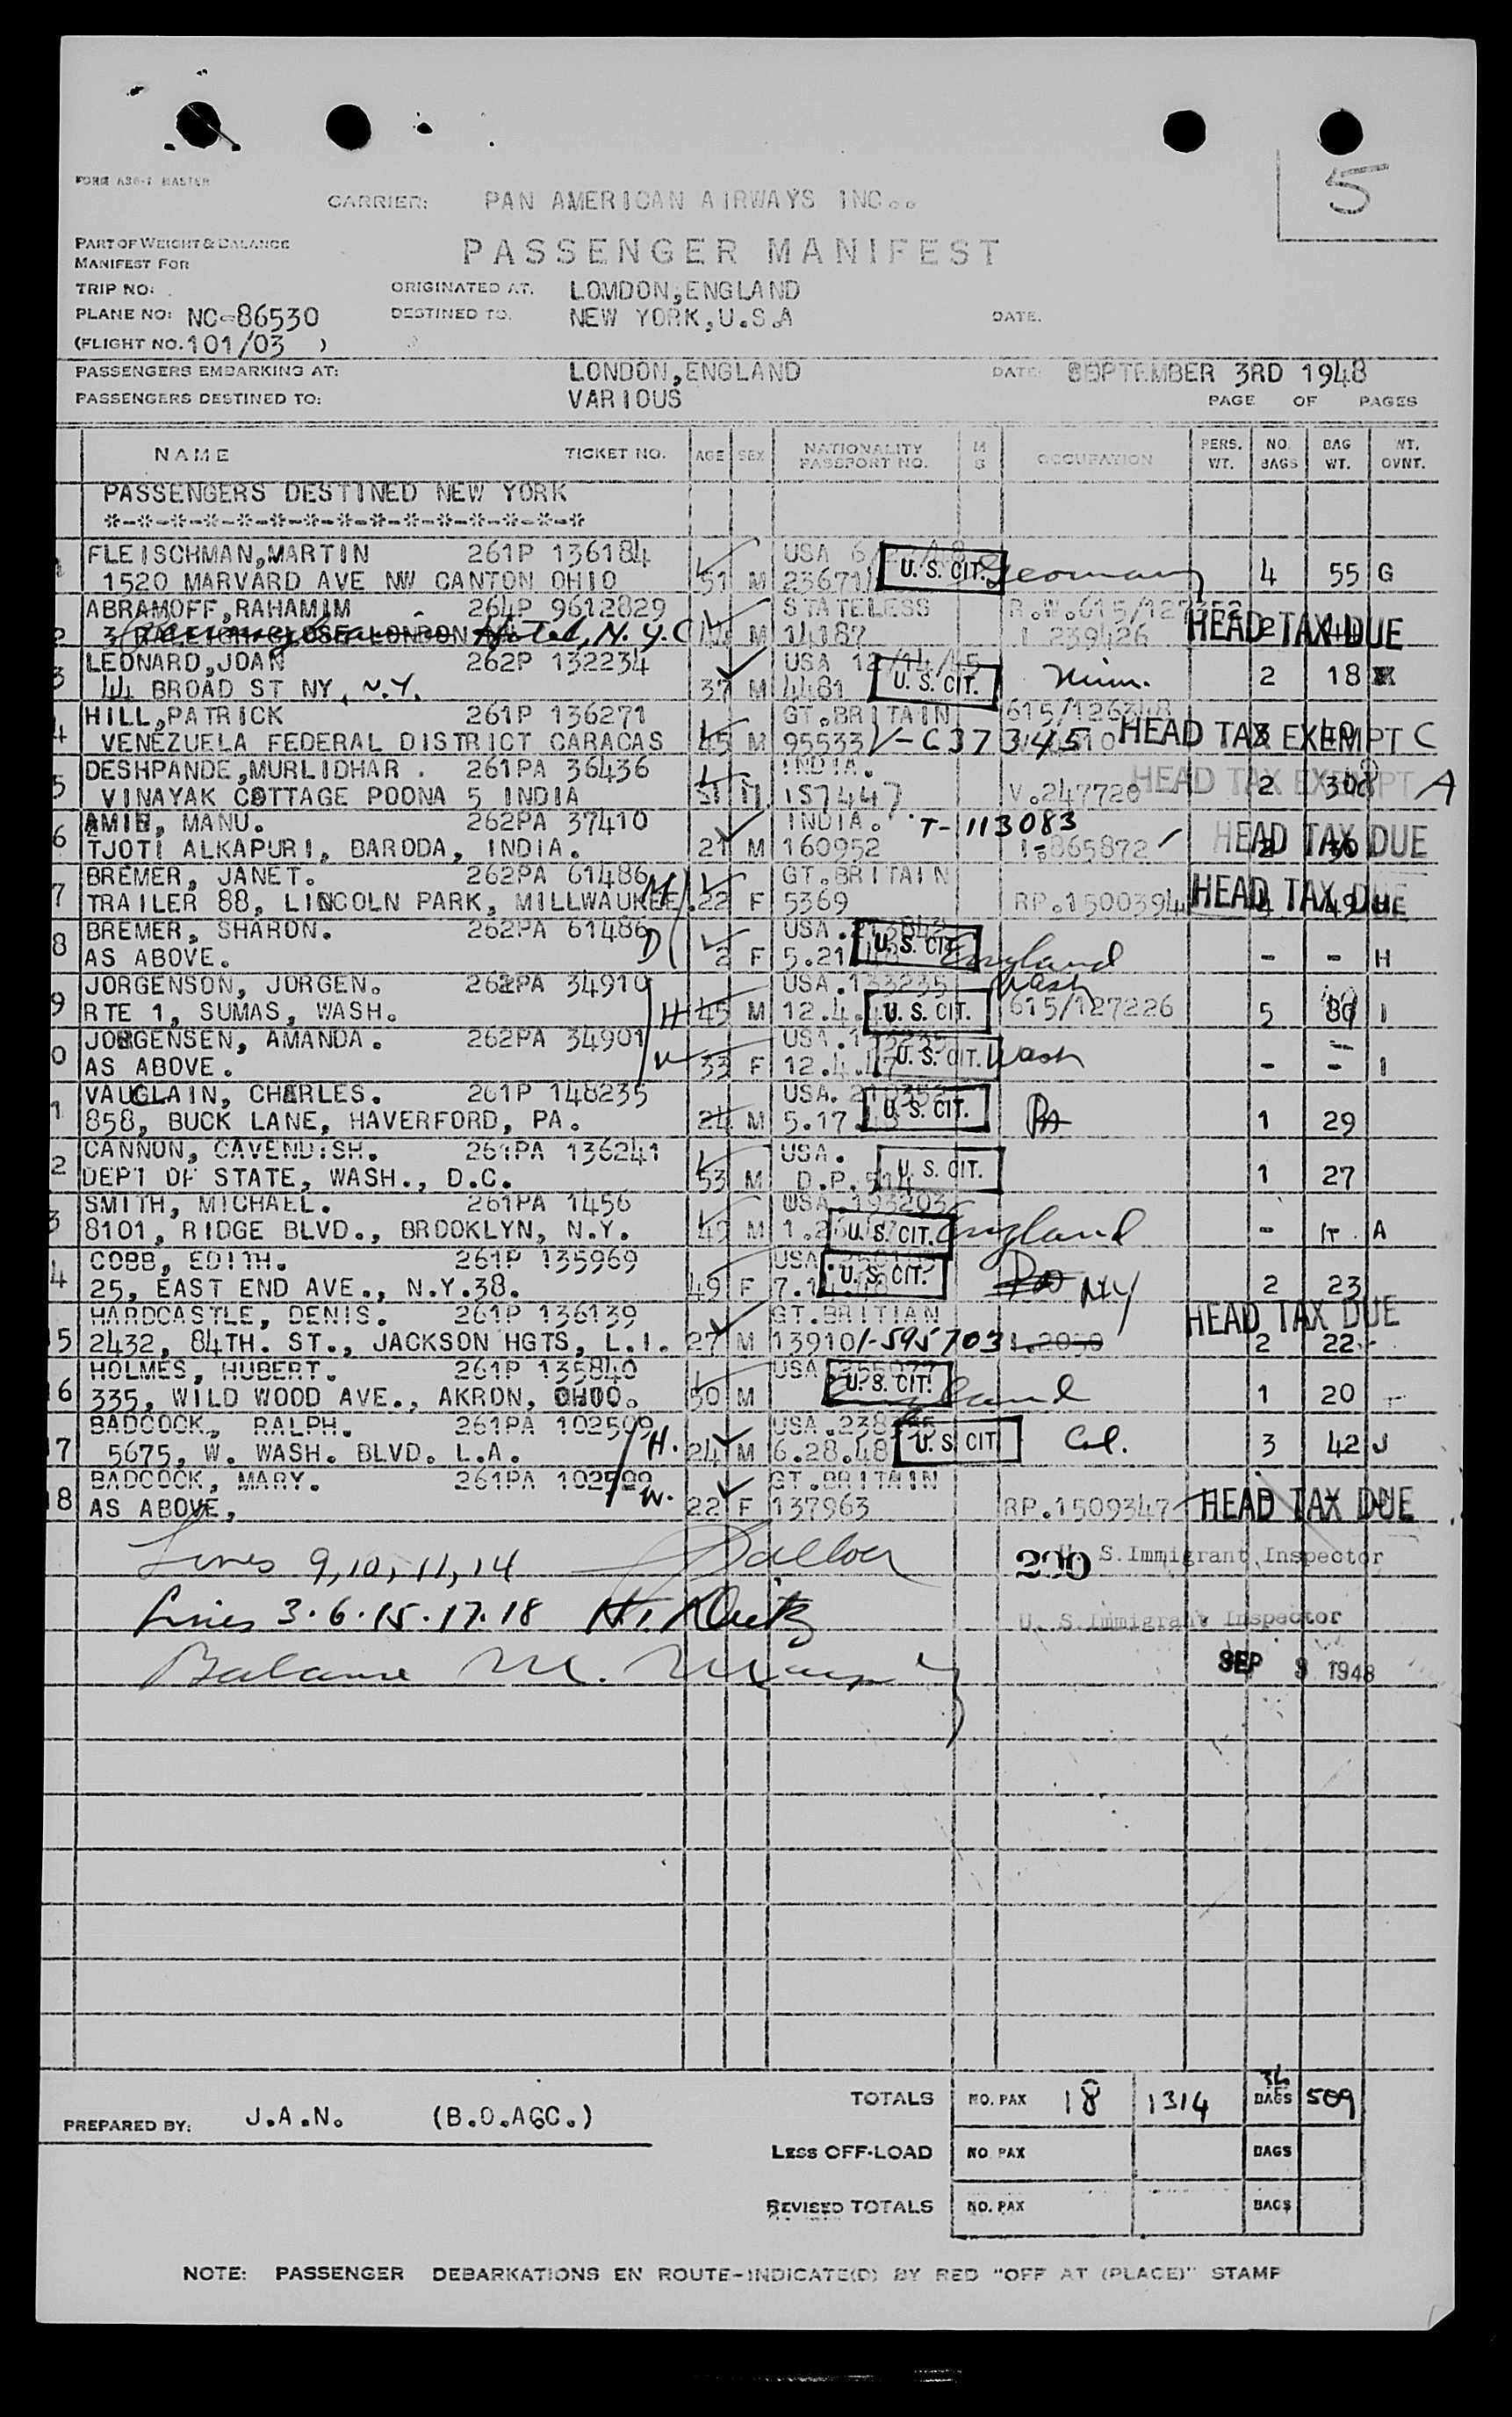 5
FORM A36-1 MASTER
CARRIER: PAN AMERICAN AIRWAYS INC..
PASSENGER MANIFEST
PART OF WEIGHT & BALANCE
MANIFEST FOR
TRIP NO: ORIGINATED AT. LOMDON,ENGLAND
PLANE NO: NC-86530 DESTINED TO. NEW YORK,U.S.A DATE.
(FLIGHT NO. 101/03 )
PASSENGERS EMBARKING AT: LONDON,ENGLAND DATE: SEPTEMBER 3RD 1948
PASSENGERS DESTINED TO: VARIOUS PAGE OF PAGES
NAME TICKET NO. AGE SEX NATIONALITY PASSPORT NO. M S OCCUPATION PERS. WT. NO. BAGS BAG WT. WT. OVNT.
PASSENGERS DESTINED NEW YORK
*-*-*-*-*-*-*-*-*-*-*-*-*-*-*
FLEISCHMAN,MARTIN 261P 136184 USA
1520 MARVARD AVE NW CANTON OHIO 51 M 23671 U. S. CIT. Germany 4 55 G
ABRAMOFF,RAHAMIM 264P 9612829 STATELESS R.W.615/127352
2 CLOSE LONDON Hotel, N.Y.C 44 M 14187 I 239426 2 HEAD TAX DUE
LEONARD,JOAN 262P 132234 USA 12/14/45
3 44 BROAD ST NY, N.Y. 37 M 4481 U. S. CIT. Minn. 2 18
HILL,PATRICK 261P 136271 GT.BRITAIN 615/126348
4 VENEZUELA FEDERAL DISTRICT CARACAS 45 M 95533 V-C37345 3 HEAD TAX EXEMPT C
DESHPANDE,MURLIDHAR . 261PA 36436 INDIA.
5 VINAYAK COTTAGE POONA 5 INDIA 31 M 157447 V.247720 2 30 HEAD TAX EXEMPT A
AMIN, MANU. 262PA 37410 INDIA. T-113083
6 TJOTI ALKAPURI, BARODA, INDIA. 21 M 160952 I-865872 2 30 HEAD TAX DUE
BREMER, JANET. 262PA 61486 GT.BRITAIN
7 TRAILER 88, LINCOLN PARK, MILLWAUKEE. M 22 F 5369 RP.1500394 4 49 H HEAD TAX DUE
BREMER, SHARON. 262PA 61486 USA.
8 AS ABOVE. D 2 F 5.21 U. S. CIT England - - H
JORGENSON, JORGEN. 262PA 34910 USA.133235 Wash
9 RTE 1, SUMAS, WASH. H 45 M 12.4. U. S. CIT. 615/127226 5 80 I
JORGENSEN, AMANDA. 262PA 34901 USA.
0 AS ABOVE. W 33 F 12.4.47 U. S. CIT. Wash - - I
VAUCLAIN, CHARLES. 261P 148235 USA.
1 858, BUCK LANE, HAVERFORD, PA. 24 M 5.17. U. S. CIT. Pa 1 29
CANNON, CAVENDISH. 261PA 136241 USA.
2 DEPT OF STATE, WASH., D.C. 53 M D.P.514 U. S. CIT. 1 27
SMITH, MICHAEL. 261PA 1456 USA.193203
3 8101, RIDGE BLVD., BROOKLYN, N.Y. 49 M U. S. CIT. England - A
COBB, EDITH. 261P 135969 USA
4 25, EAST END AVE., N.Y.38. 49 F 7.14.48 U. S. CIT. NY 2 23
HARDCASTLE, DENIS. 261P 136139 GT.BRITIAN
5 2432, 84TH. ST., JACKSON HGTS, L.I. 27 M 13910 I-595703 I.2050 2 22 HEAD TAX DUE
HOLMES, HUBERT. 261P 135840 USA
6 335, WILD WOOD AVE., AKRON, OHIO. 50 M U. S. CIT. England 1 20
BADCOCK, RALPH. 261PA 102509 USA.238
7 5675, W. WASH. BLVD. L.A. H. 24 M 6.28.48 U. S. CIT Cal. 3 42 J
BADCOCK, MARY. 261PA 102509 GT.BRITAIN
18 AS ABOVE, W. 22 F 137963 RP.1509347 HEAD TAX DUE
Lines 9,10,11,14 200 U. S. Immigrant Inspector
Lines 3.6.15.17.18 U. S. Immigrant Inspector
Balance M. Murphy SEP 3 1948
TOTALS NO. PAX 18 1314 36 BAGS 509
PREPARED BY: J.A.N. (B.O.AGC.)
LESS OFF-LOAD NO. PAX BAGS
REVISED TOTALS NO. PAX BAGS
NOTE: PASSENGER DEBARKATIONS EN ROUTE-INDICATE(D) BY RED "OFF AT (PLACE)" STAMP